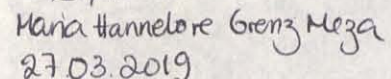 Maria Hannelore Grenz Meza
27.03.2019